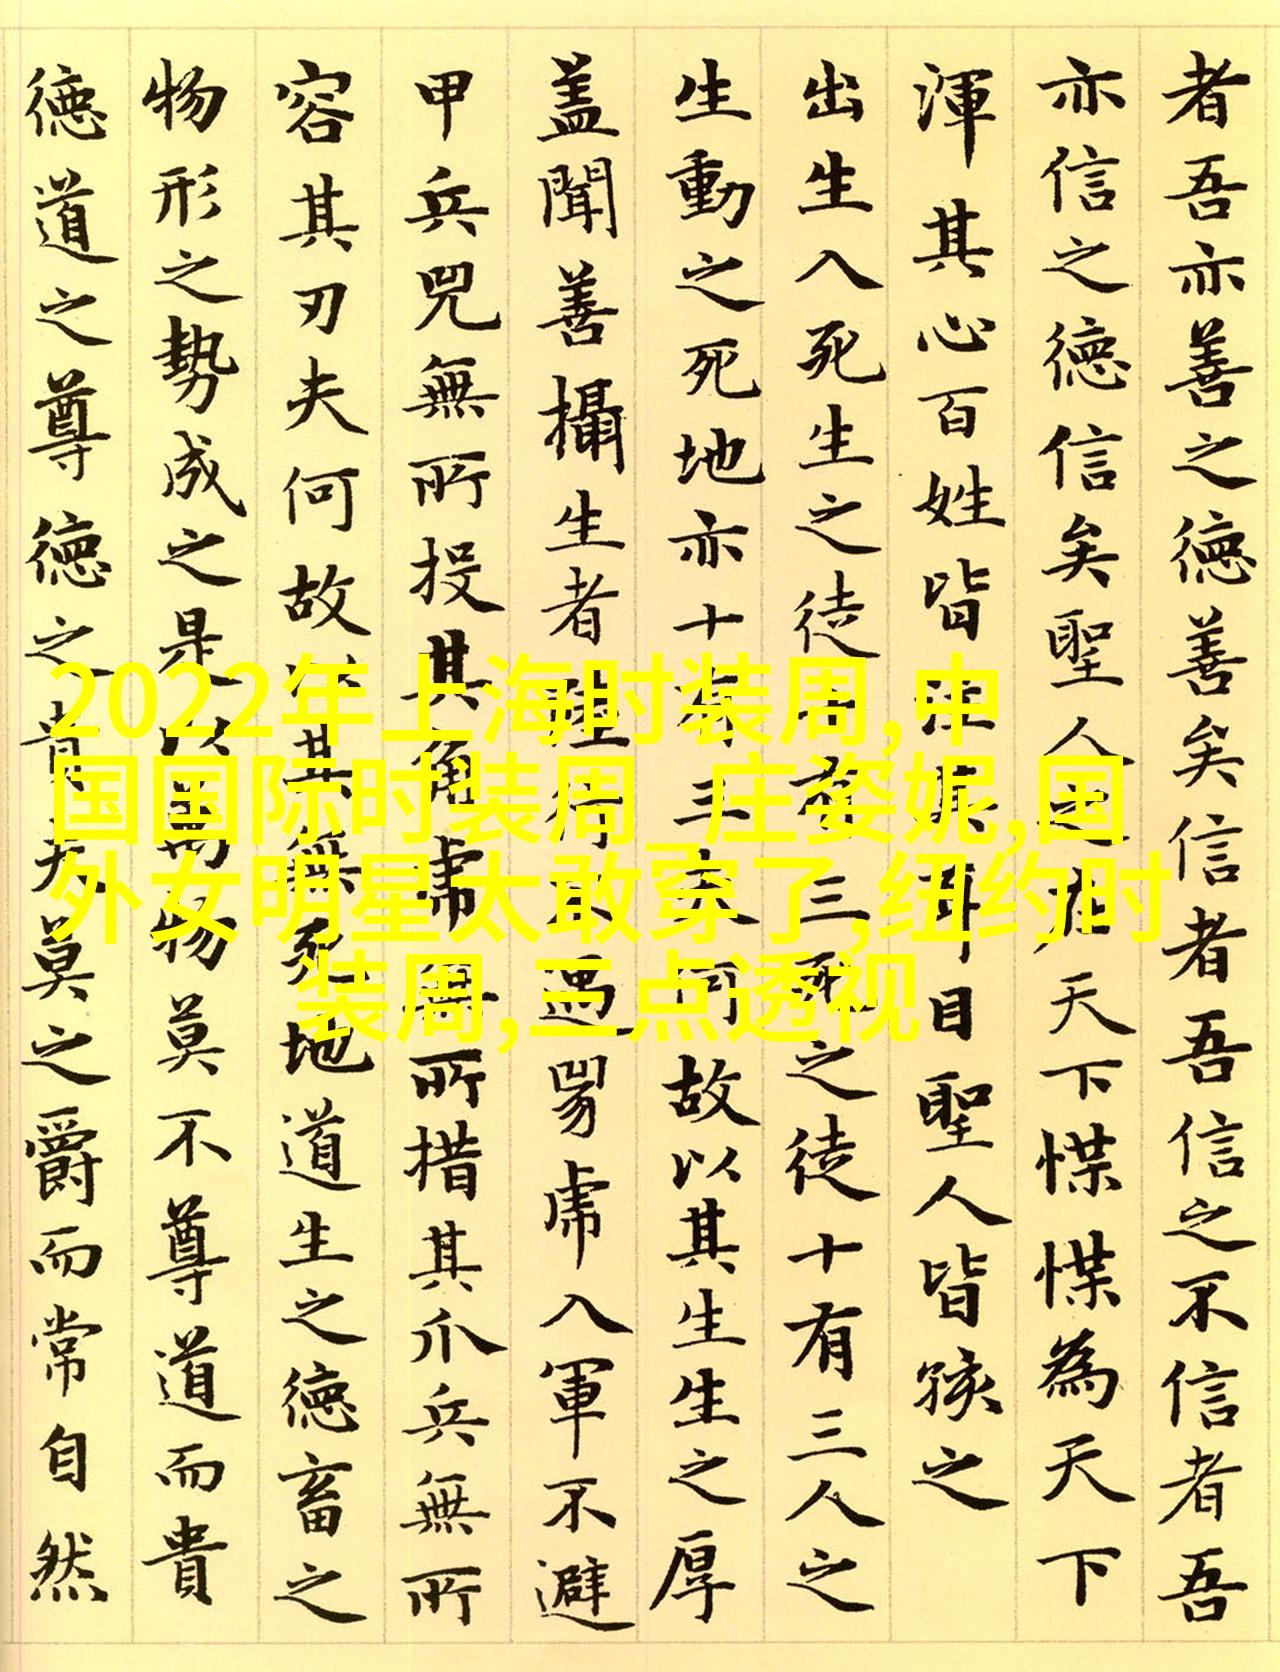 者吾亦善之德善矣信者吾信之不信者吾
亦信之德信矣聖人之在天下惵惵為天下
渾其心百姓皆注其耳目聖人皆孩之
出生入死生之徒十有三死之徒十有三人之
生動之死地亦十有三夫何故以其生生之厚
蓋聞善攝生者陸行不遇兕虎入軍不避
甲兵兕無所投其角虎無所措其爪兵無所
容其刃夫何故以其無死地道生之德畜之
物形之勢成之是以萬物莫不尊道而貴
德道之尊德之貴夫莫之爵而常自然
2022年上海时装周,中
国国际时装周 庄姿妮,国
外女明星太敢穿了,纽约时
装周,三点透视